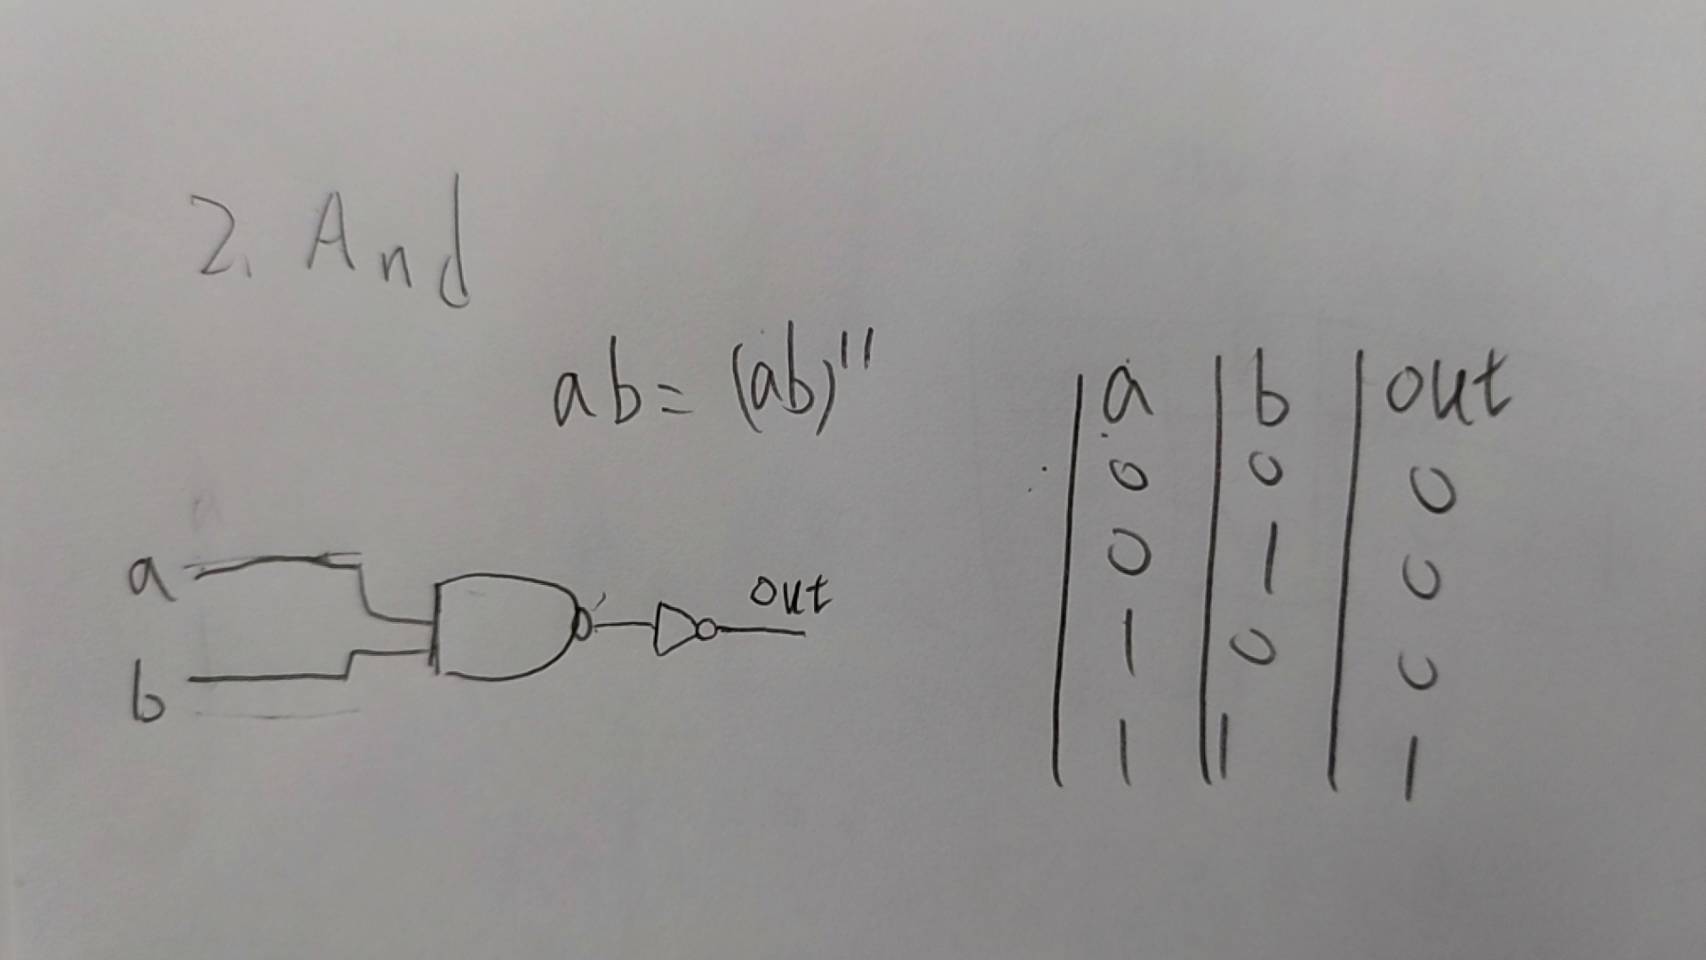 2. And
ab = (ab)''
a
b
out
a b out
0 0 0
0 1 0
1 0 0
1 1 1